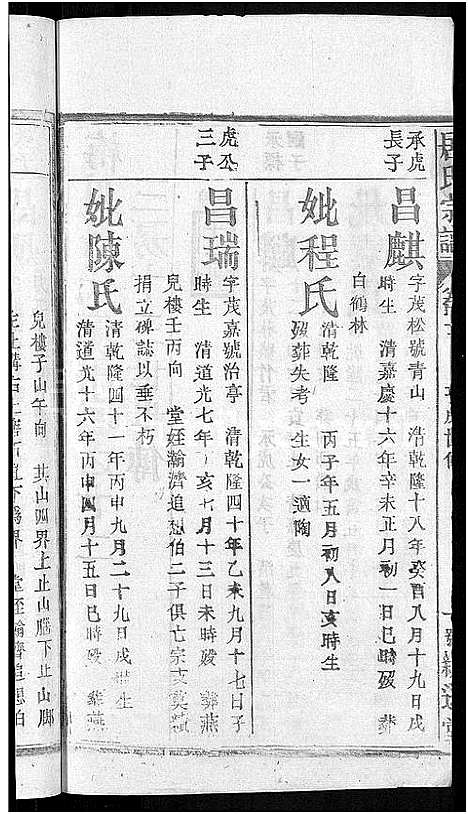 承虎
長子
昌麒
字茂松號青山 清乾隆十八年癸酉八月十九日戍
時生 清嘉慶十六年辛未正月初一日巳時歿 葬
白鶴林
妣程氏
清乾隆 丙子年五月初八日亥時生
歿葬失考 生女一適陶
虎公
三子
昌瑞
字茂嘉號治亭 清乾隆四十年乙未九月十七日子
時生 清道光七年丁亥七月十三日未時歿 葬燕
兒樓壬丙向 堂姪瀚濟追想伯二子俱亡宗支莫
捐立碑誌以垂不朽
妣陳氏
清乾隆四十一年丙申九月二十九日戍時生
清道光十六年丙申四月十五日巳時歿 葬燕
兒樓子山午向 其山四界上止山腦下止山脚